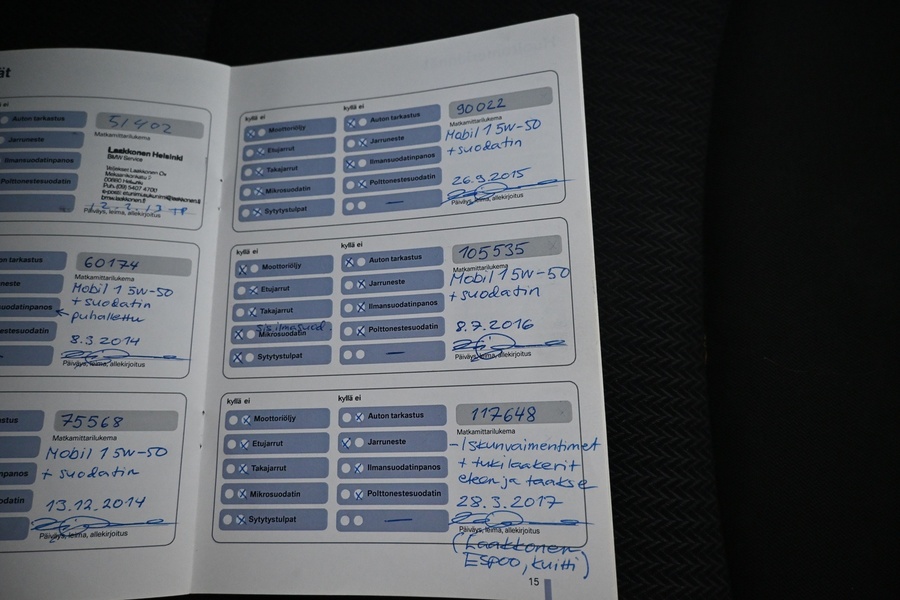 ät
ei
Auton tarkastus
Jarruneste
Ilmansuodatinpanos
Polttonestesuodatin
51402
Matkamittarilukema
Laakkonen Helsinki
BMW Service
Veljekset Laakkonen Oy
00880 Helsinki
Puh. (09) 5407 4700
bmw.laakkonen.fi
12.2.13
Päiväys, leima, allekirjoitus
ei
tarkastus
neste
suodatinpanos
nestesuodatin
–
60174
Matkamittarilukema
Mobil 1 5W-50
+ suodatin
puhallettu
8.3.2014
Päiväys, leima, allekirjoitus
75568
Matkamittarilukema
Mobil 1 5W-50
+ suodatin
13.12.2014
Päiväys, leima, allekirjoitus
kyllä ei
Moottoriöljy
Etujarrut
Takajarrut
Mikrosuodatin
Sytytystulpat
kyllä ei
Auton tarkastus
Jarruneste
Ilmansuodatinpanos
Polttonestesuodatin
—
90022
Matkamittarilukema
Mobil 1 5W-50
+ suodatin
26.9.2015
Päiväys, leima, allekirjoitus
kyllä ei
Moottoriöljy
Etujarrut
Takajarrut
sis.ilmasuod.
Mikrosuodatin
Sytytystulpat
kyllä ei
Auton tarkastus
Jarruneste
Ilmansuodatinpanos
Polttonestesuodatin
—
105535
Matkamittarilukema
Mobil 1 5W-50
+ suodatin
8.7.2016
Päiväys, leima, allekirjoitus
kyllä ei
Moottoriöljy
Etujarrut
Takajarrut
Mikrosuodatin
Sytytystulpat
kyllä ei
Auton tarkastus
Jarruneste
Ilmansuodatinpanos
Polttonestesuodatin
—
117648
Matkamittarilukema
- Iskunvaimentimet
+ tukilaakerit
eteen ja taakse
28.3.2017
Päiväys, leima, allekirjoitus
(Laakkonen
Espoo, kuitti)
15